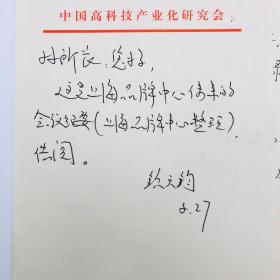 中国高科技产业化研究会
所长:您好,
这是上海品牌中心传来的
会议纪要(上海品牌中心整理),
供阅。
8.27